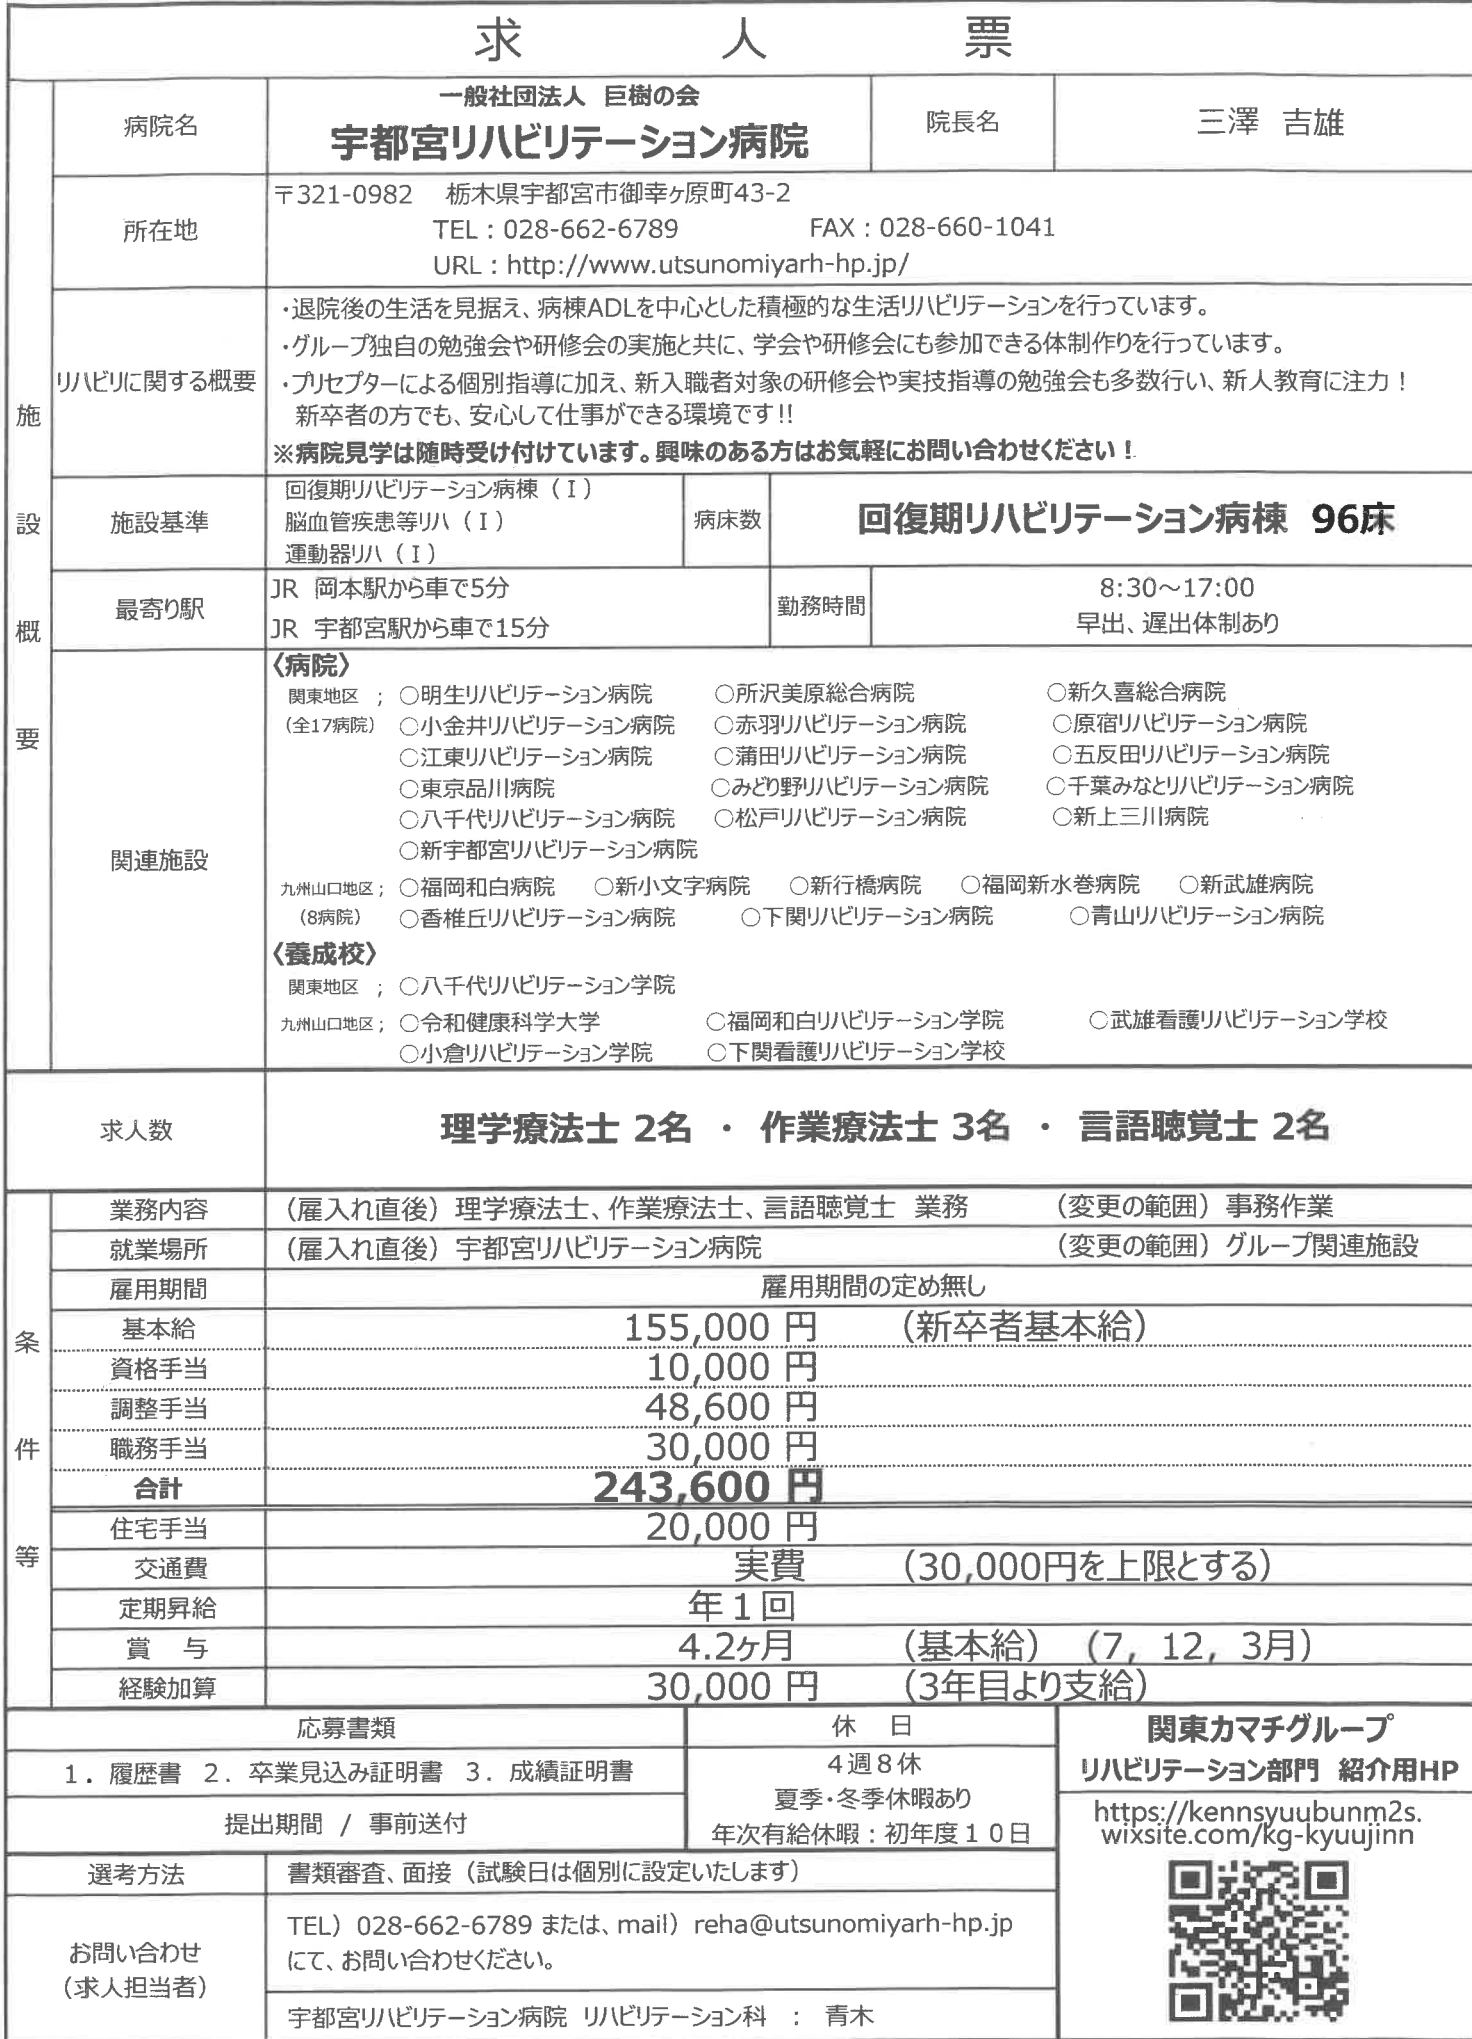 求人票
施設概要
病院名
一般社団法人 巨樹の会
宇都宮リハビリテーション病院
院長名
三澤 吉雄
所在地
〒321-0982 栃木県宇都宮市御幸ヶ原町43-2
TEL：028-662-6789 FAX：028-660-1041
URL：http://www.utsunomiyarh-hp.jp/
リハビリに関する概要
・退院後の生活を見据え、病棟ADLを中心とした積極的な生活リハビリテーションを行っています。
・グループ独自の勉強会や研修会の実施と共に、学会や研修会にも参加できる体制作りを行っています。
・プリセプターによる個別指導に加え、新入職者対象の研修会や実技指導の勉強会も多数行い、新人教育に注力！
新卒者の方でも、安心して仕事ができる環境です!!
※病院見学は随時受け付けています。興味のある方はお気軽にお問い合わせください！
施設基準
回復期リハビリテーション病棟（Ｉ）
脳血管疾患等リハ（Ｉ）
運動器リハ（Ｉ）
病床数
回復期リハビリテーション病棟 96床
最寄り駅
JR 岡本駅から車で5分
JR 宇都宮駅から車で15分
勤務時間
8:30～17:00
早出、遅出体制あり
関連施設
〈病院〉
関東地区 ； ○明生リハビリテーション病院 ○所沢美原総合病院 ○新久喜総合病院
(全17病院) ○小金井リハビリテーション病院 ○赤羽リハビリテーション病院 ○原宿リハビリテーション病院
○江東リハビリテーション病院 ○蒲田リハビリテーション病院 ○五反田リハビリテーション病院
○東京品川病院 ○みどり野リハビリテーション病院 ○千葉みなとリハビリテーション病院
○八千代リハビリテーション病院 ○松戸リハビリテーション病院 ○新上三川病院
○新宇都宮リハビリテーション病院
九州山口地区； ○福岡和白病院 ○新小文字病院 ○新行橋病院 ○福岡新水巻病院 ○新武雄病院
(8病院) ○香椎丘リハビリテーション病院 ○下関リハビリテーション病院 ○青山リハビリテーション病院
〈養成校〉
関東地区 ； ○八千代リハビリテーション学院
九州山口地区； ○令和健康科学大学 ○福岡和白リハビリテーション学院 ○武雄看護リハビリテーション学校
○小倉リハビリテーション学院 ○下関看護リハビリテーション学校
求人数
理学療法士 2名 ・ 作業療法士 3名 ・ 言語聴覚士 2名
条件等
業務内容 （雇入れ直後）理学療法士、作業療法士、言語聴覚士 業務 （変更の範囲）事務作業
就業場所 （雇入れ直後）宇都宮リハビリテーション病院 （変更の範囲）グループ関連施設
雇用期間 雇用期間の定め無し
基本給 155,000 円 （新卒者基本給）
資格手当 10,000 円
調整手当 48,600 円
職務手当 30,000 円
合計 243,600 円
住宅手当 20,000 円
交通費 実費 （30,000円を上限とする）
定期昇給 年１回
賞 与 4.2ヶ月 （基本給）（7，12，3月）
経験加算 30,000 円 （3年目より支給）
応募書類
1．履歴書 2．卒業見込み証明書 3．成績証明書
提出期間 / 事前送付
休 日
４週８休
夏季・冬季休暇あり
年次有給休暇：初年度１０日
関東カマチグループ
リハビリテーション部門 紹介用HP
https://kennsyuubunm2s.
wixsite.com/kg-kyuujinn
選考方法
書類審査、面接（試験日は個別に設定いたします）
お問い合わせ
（求人担当者）
TEL）028-662-6789 または、mail）reha@utsunomiyarh-hp.jp
にて、お問い合わせください。
宇都宮リハビリテーション病院 リハビリテーション科 ： 青木